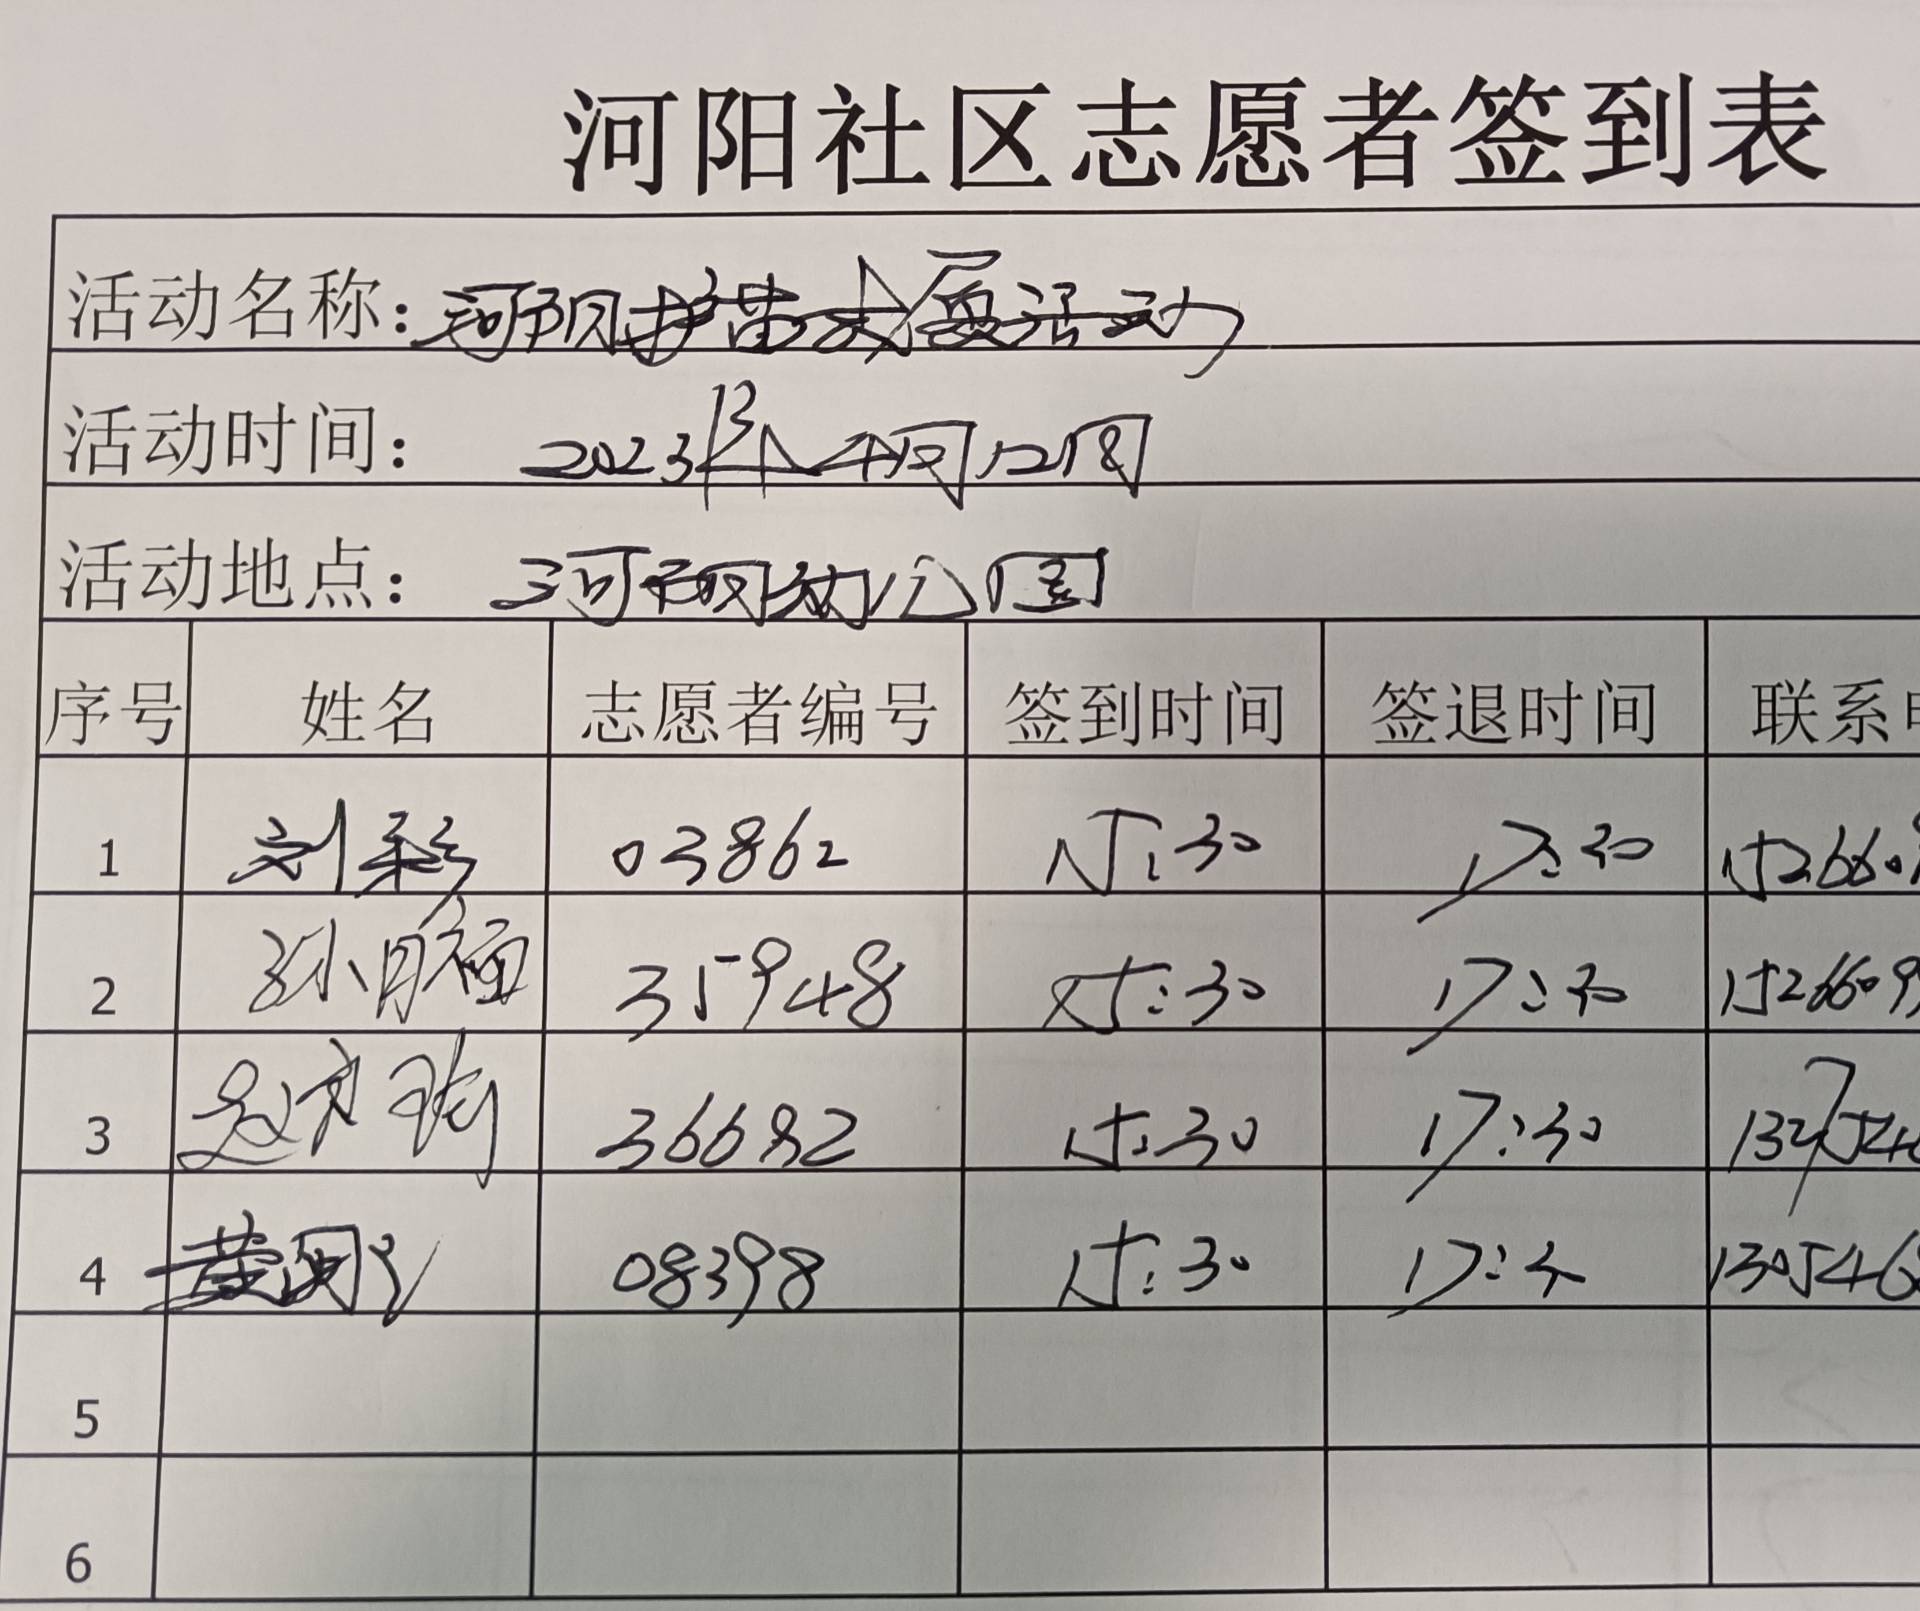 河阳社区志愿者签到表
活动名称：河阳护苗 活动
活动时间：2023 4月12日
活动地点：河阳幼儿园
序号 姓名 志愿者编号 签到时间 签退时间 联系
1 刘彩 03862 15:30 17:30 152660
2 孙月福 35948 15:30 17:30 1526609
3 赵 36682 15:30 17:30 13 54
4 黄 08398 15:30 17:3 1305468
5
6